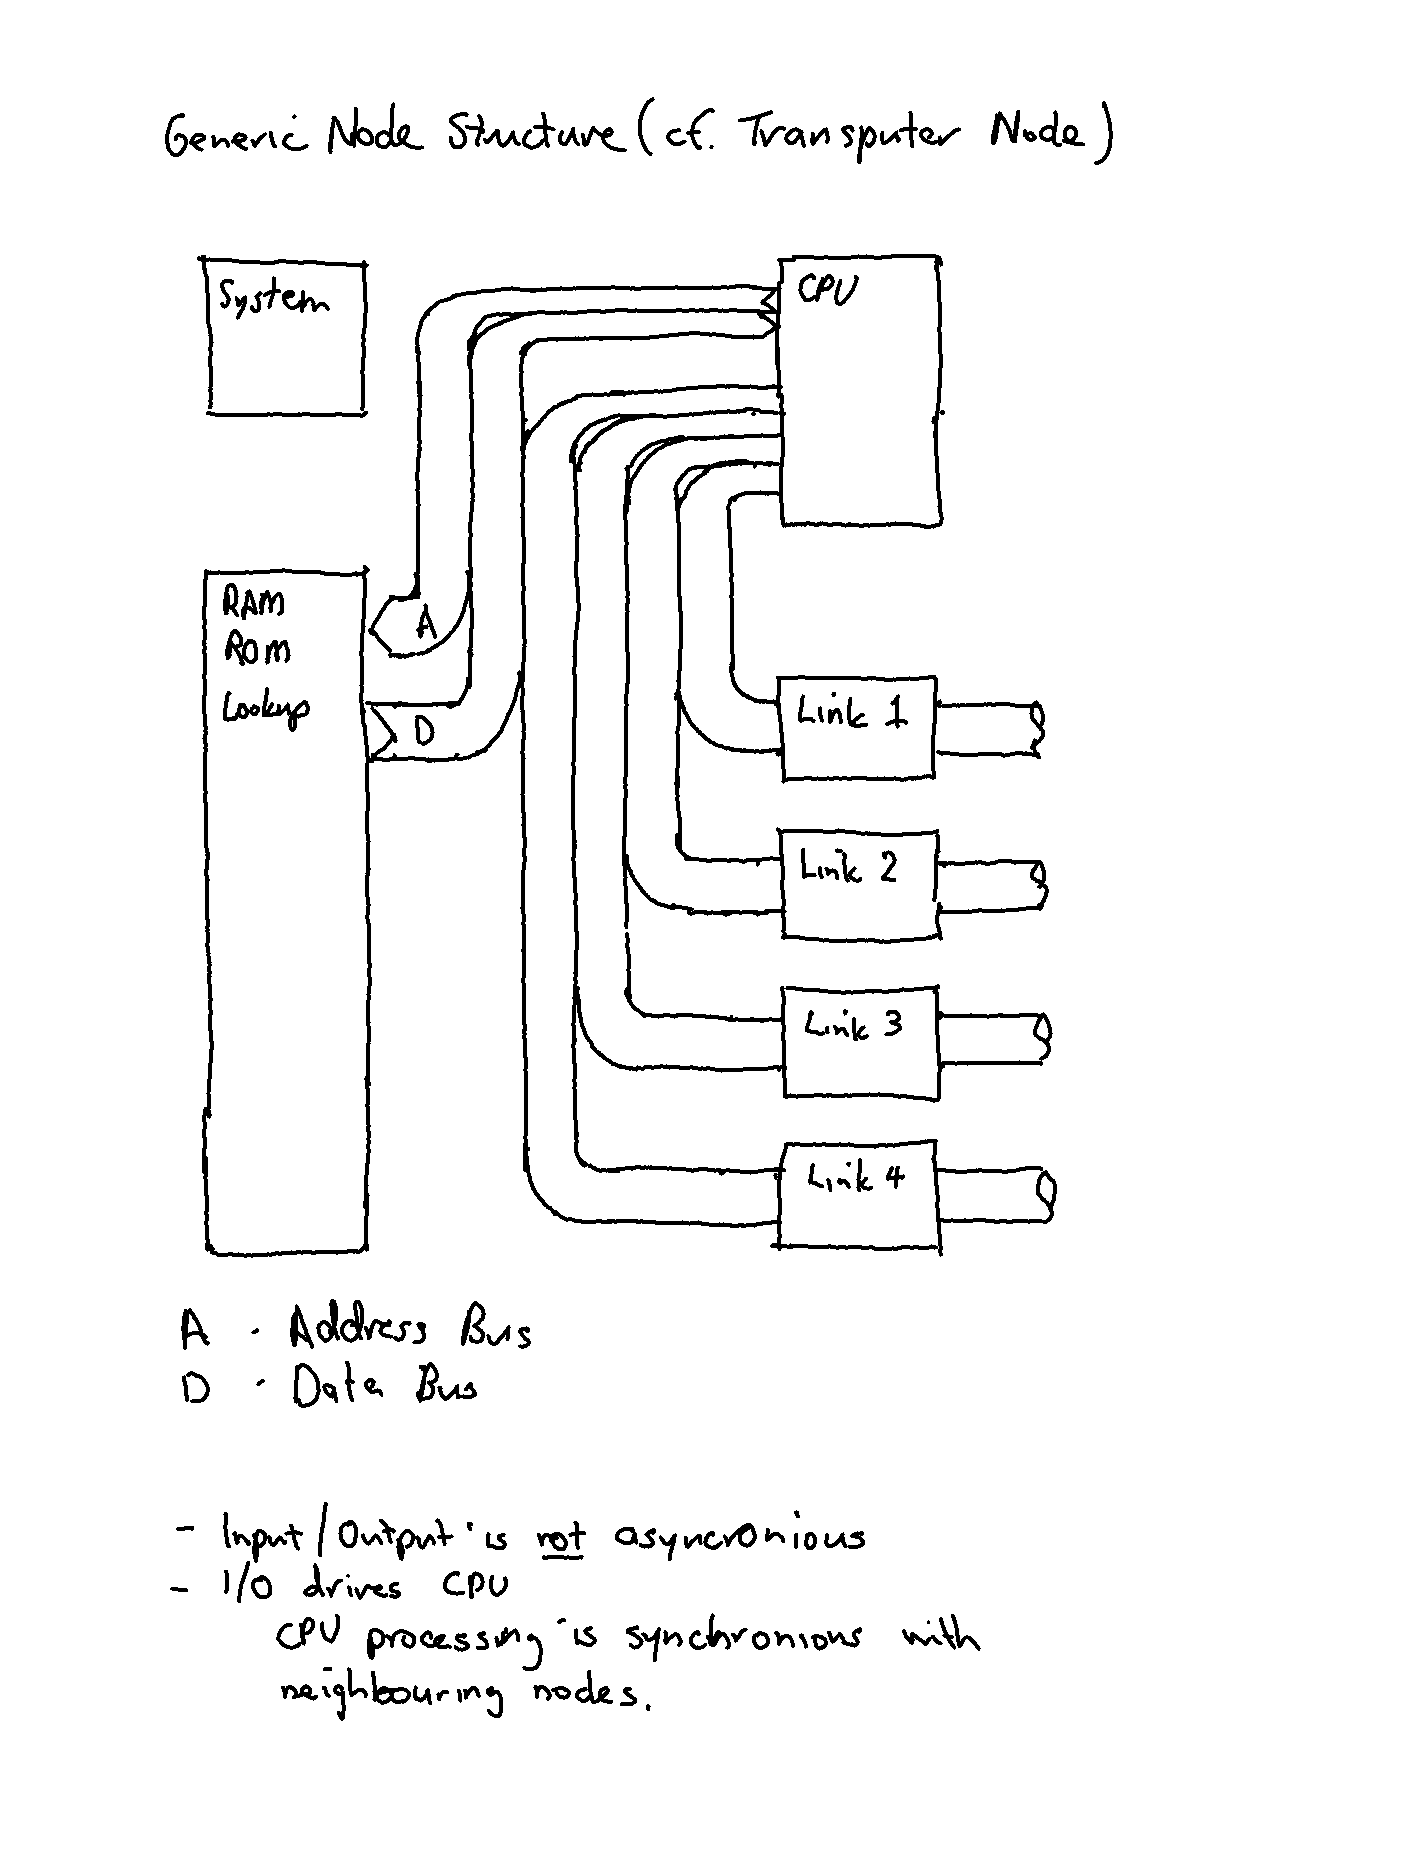 Generic Node Structure (cf. Transputer Node)
System
CPU
RAM
ROM
Lookup
A
D
Link 1
Link 2
Link 3
Link 4
A - Address Bus
D - Data Bus
- Input/Output is not asyncronious
- I/O drives CPU
CPU processing is synchronious with
neighbouring nodes.